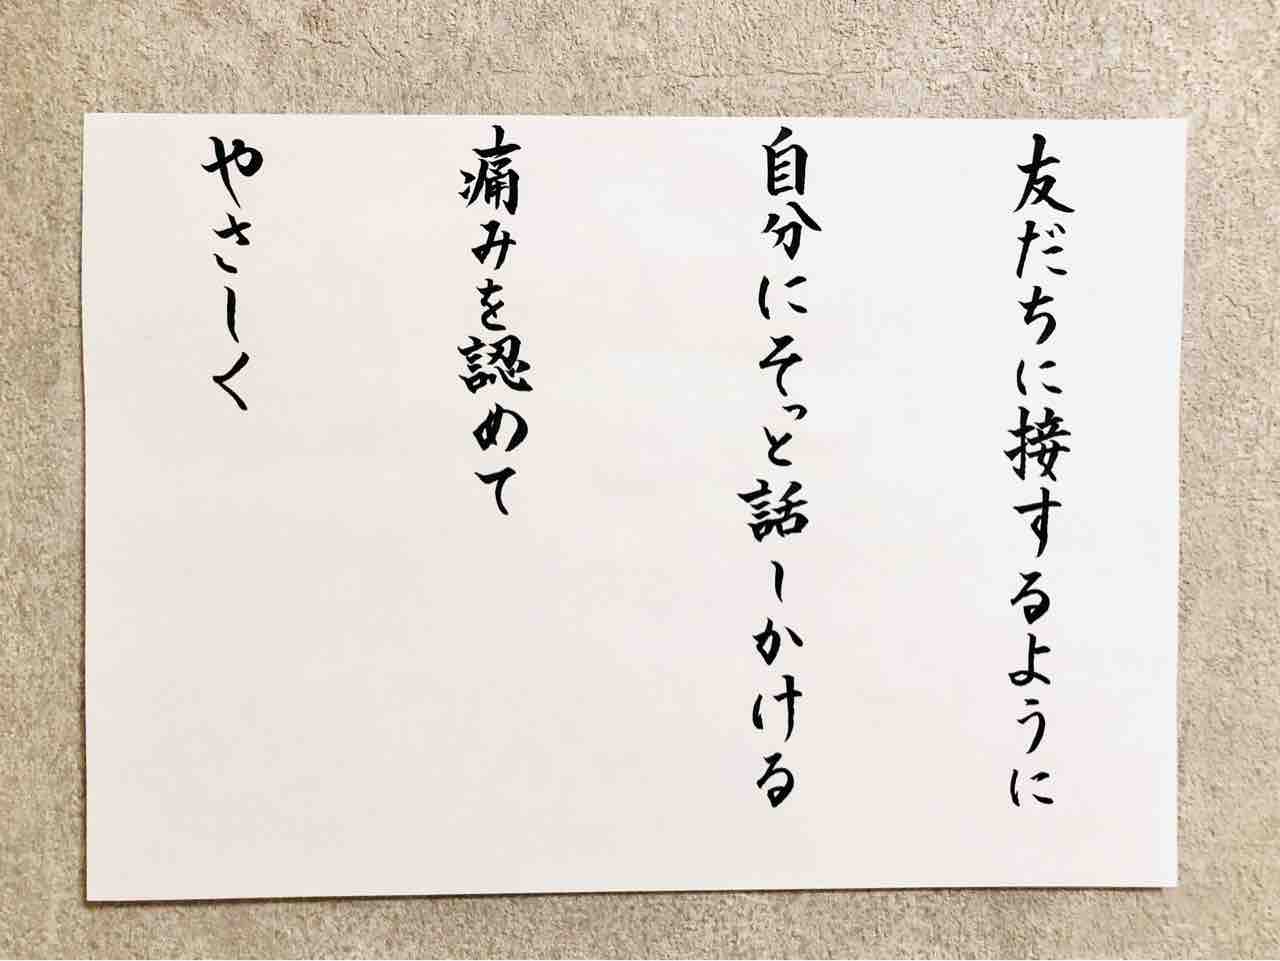 友だちに接するように
自分にそっと話しかける
痛みを認めて
やさしく